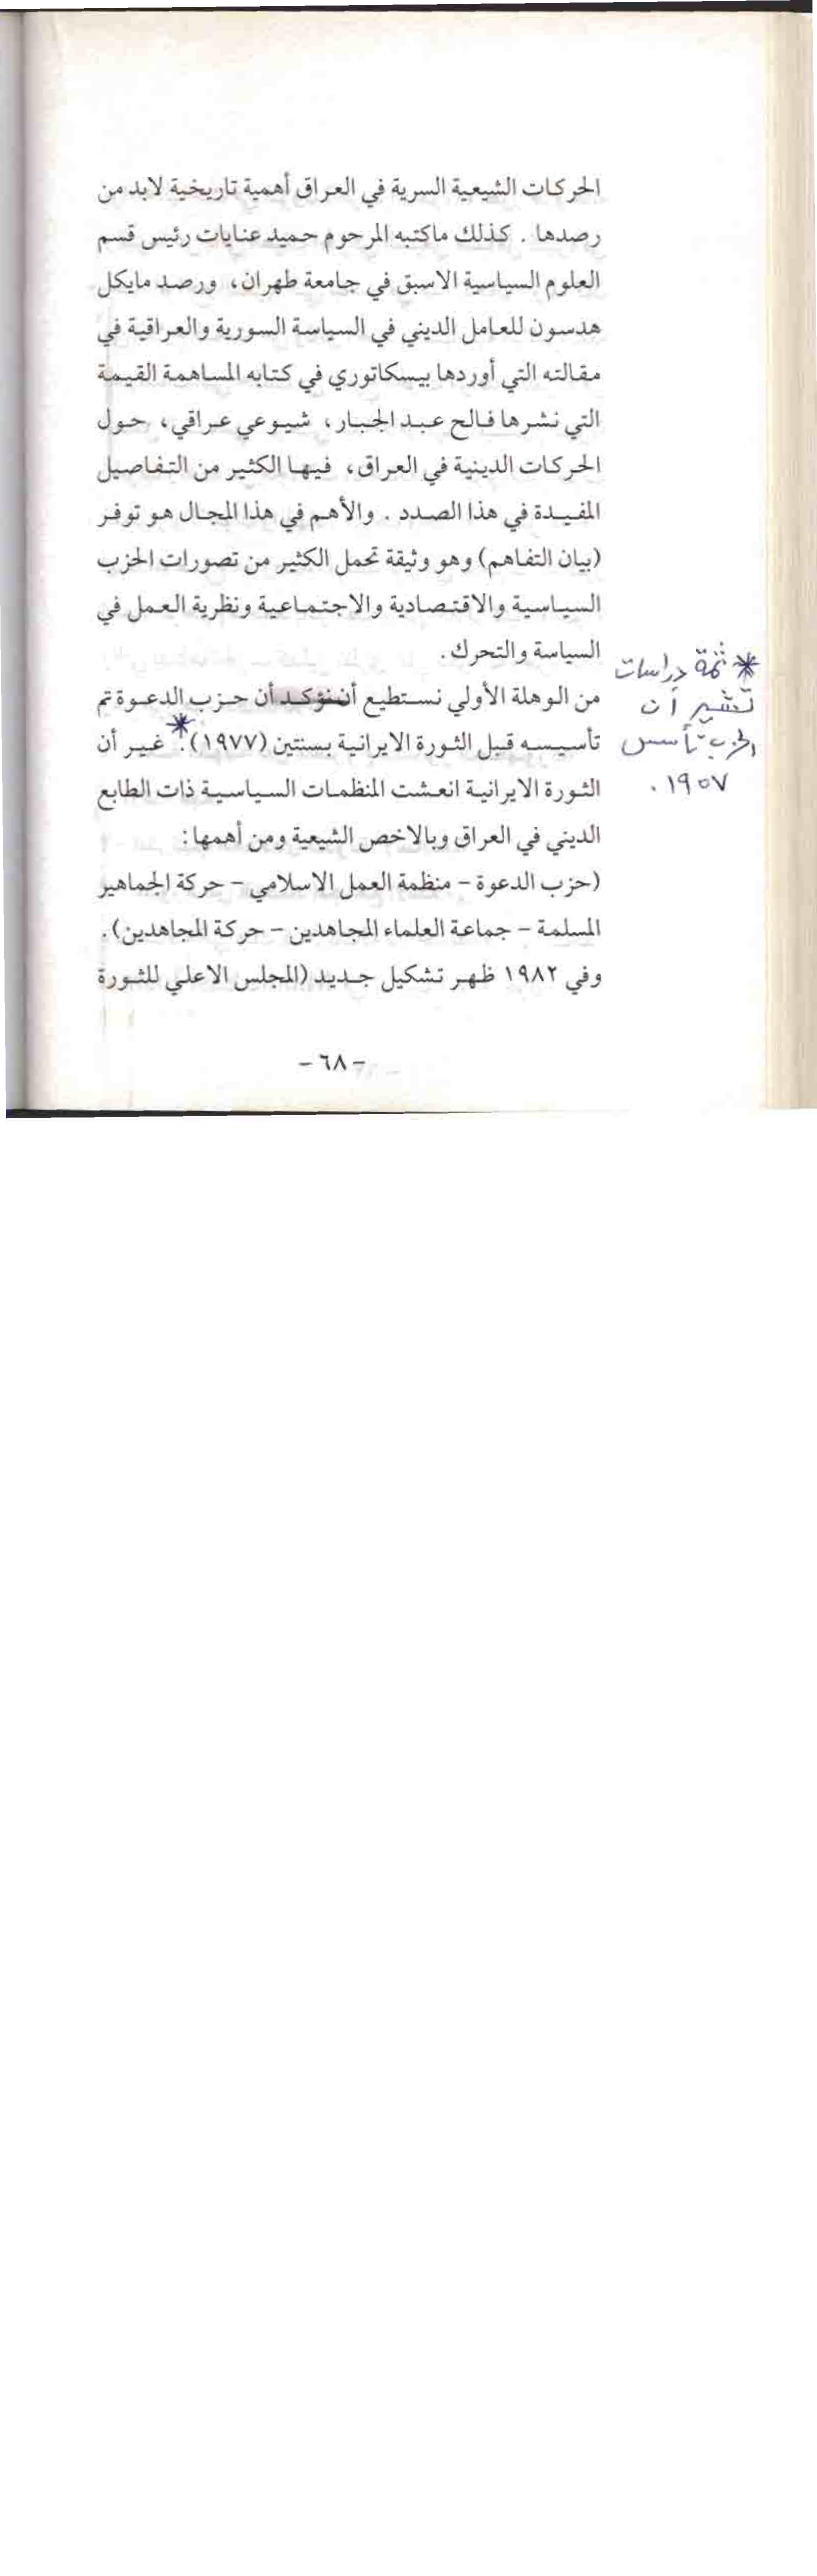 الحركات الشيعية السرية في العراق أهمية تاريخية لابد من
رصدها . كذلك ماكتبه المرحوم حميد عنايات رئيس قسم
العلوم السياسية الاسبق في جامعة طهران، ورصد مايكل
هدسون للعامل الديني في السياسة السورية والعراقية في
مقالته التي أوردها بيسكاتوري في كتابه المساهمة القيمة
التي نشرها فالح عبد الجبار، شيوعي عراقي، حول
الحركات الدينية في العراق، فيها الكثير من التفاصيل
المفيدة في هذا الصدد . والأهم في هذا المجال هو توفر
(بيان التفاهم) وهو وثيقة تحمل الكثير من تصورات الحزب
السياسية والاقتصادية والاجتماعية ونظرية العمل في
السياسة والتحرك.
من الوهلة الأولي نستطيع أن نؤكد أن حزب الدعوة تم
تأسيسه قبل الثورة الايرانية بسنتين (١٩٧٧).* غير أن
الثورة الايرانية انعشت المنظمات السياسية ذات الطابع
الديني في العراق وبالاخص الشيعية ومن أهمها:
(حزب الدعوة - منظمة العمل الاسلامي - حركة الجماهير
المسلمة - جماعة العلماء المجاهدين - حركة المجاهدين).
وفي ١٩٨٢ ظهر تشكيل جديد (المجلس الاعلي للثورة
* ثمة دراسات
تشير أن
الحزب تأسس
١٩٥٧.
- ٦٨ -